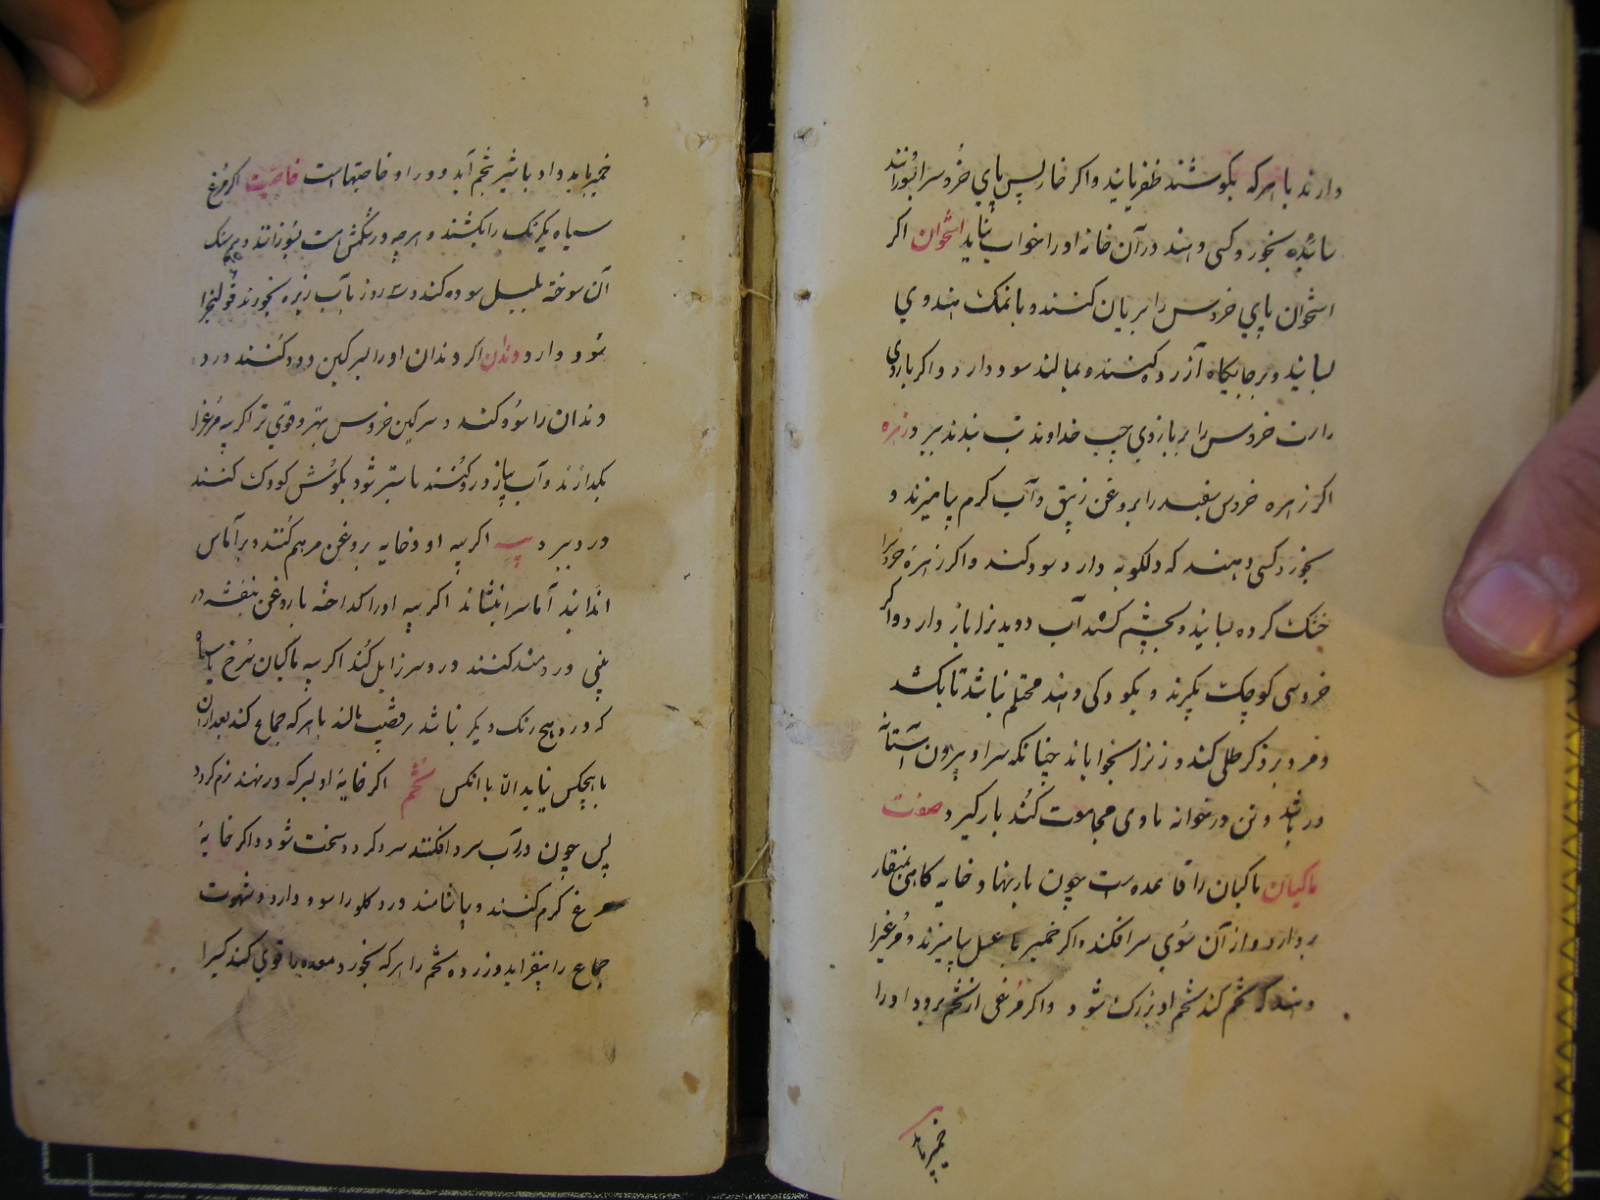 دارند با هرکه بکوشند ظفر یابند و اکر خار پس پای خروس را بسوزانند
سائیده بخورد کسی دهند در آن خانه او را خواب نیاید استخوان اکر
استخوان پای خروس را بریان کنند و با نمک هندوی
بسایند و بر جایکاه آزرده کنند و بمالند سود دارد و اکر بازوی
راست خروس را بر بازوی چپ خداوند تب بندند ببرد زهره
اکر زهره خروس سفید را بروغن زنبق و آب کرم بیامیزند و
بخورد کسی دهند که دلکوبه دارد سود کند و اکر زهره خروس را
خشک کرده بسایند و بچشم کشد آب دویدن را باز دارد و اکر
خروسی کوچک بکیرند و بکودکی دهند محتلم نباشد تا بکشد
و خون بر ذکر طلی کند و زن را بخواباند چنانکه سر او بیرون آستانه
در باشد و تن در خانه با وی مجامعت کند بار کیرد صفت
ماکیان ماکیان را قاعده ست چون بار بنهاد خایه کاهی بمنقار
بردارد و از آن سوی سر افکند و اکر خمیر با عسل بیامیزند و مرغ را
دهند که تخم کند تخم او بزرک شود و اکر مرغی از تخم برود او را
خمیر باید
خمیر باید داد با شیر بتخم آید و در او خاصیتهاست خاصیت اکر مرغ
سیاه یکرنک را بکشند و هرچه در شکمش است بسوزانند و بر سنک
آن سوخته پلپل سوده کنند و سه روز با آب زیره بخورند قولنج را
سود دارد دندان اکر دندان او را بسرکین دود کنند درد
دندان را سود کند و سرکین خروس بهتر و قوی تر اکر پیه مرغ را
بکدازند و آب پیاز درو کنند تا ستبر شود بکوش کودک کنند
درد ببرد پیه اکر پیه او و خایه بروغن مرهم کنند و بر آماس
اندایند آماس را بنشاند اکر پیه او را کداخته با روغن بنفشه در
بینی دردمند کنند درد سر زایل کند اکر پیه ماکیان سرخ یا سیاه
که درو هیچ رنک دیکر نباشد بر قضیب مالند با هرکه جماع کند بعد از آن
با هیچکس نیاید الا با آنکس تخم اکر خایه او بسرکه در نهند نرم کردد
پس چون در آب سرد افکنند سرد کردد و سخت شود و اکر خایه
مرغ کرم کنند و بیاشامند درد کلو را سود دارد و شهوت
جماع را بیفزاید و زرده تخم را هرکه بخورد معده را قوی کند کسی را